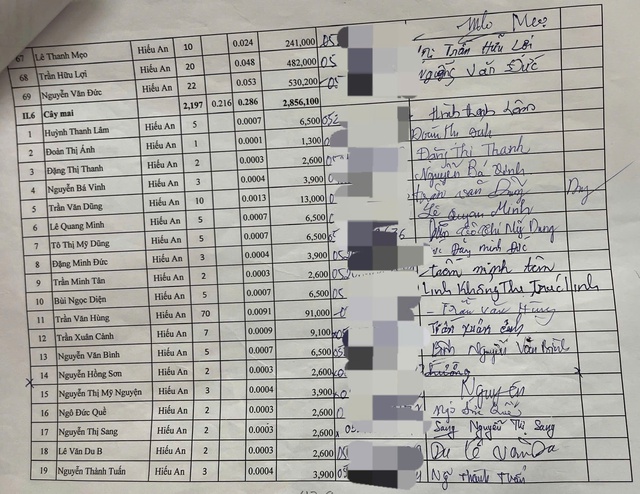 Mẹo
67 Lê Thanh Mẹo Hiếu An 10 0.024 241,000 05
68 Trần Hữu Lợi Hiếu An 20 0.048 482,000 05 Trần Hữu Lợi
69 Nguyễn Văn Đức Hiếu An 22 0.053 530,200 05 Nguyễn Văn Đức
II.6 Cây mai 2,197 0.216 0.286 2,856,100
1 Huỳnh Thanh Lâm Hiếu An 5 0.0007 6,500 052 Huỳnh Thanh Lâm
2 Đoàn Thị Ánh Hiếu An 1 0.0001 1,300 Đoàn Thị Ánh
3 Đặng Thị Thanh Hiếu An 2 0.0003 2,600 Đặng Thị Thanh
4 Nguyễn Bá Vinh Hiếu An 3 0.0004 3,900 Nguyễn Bá Vinh
5 Trần Văn Dũng Hiếu An 10 0.0013 13,000 Trần Văn Dũng Dũng
6 Lê Quang Minh Hiếu An 5 0.0007 6,500 Lê Quang Minh
7 Tô Thị Mỹ Dũng Hiếu An 5 0.0007 6,500 Tô Thị Mỹ Dung
8 Đặng Minh Đức Hiếu An 3 0.0004 3,900 Đặng Minh Đức
9 Trần Minh Tân Hiếu An 2 0.0003 2,600 Trần Minh Tân
10 Bùi Ngọc Diện Hiếu An 5 0.0007 6,500 Linh Khổng Thị Trúc Linh
11 Trần Văn Hùng Hiếu An 70 0.0091 91,000 Trần Văn Hùng
12 Trần Xuân Cảnh Hiếu An 7 0.0009 9,100 Trần Xuân Cảnh
13 Nguyễn Văn Bình Hiếu An 5 0.0007 6,500 Bình Nguyễn Văn Bình
14 Nguyễn Hồng Sơn Hiếu An 2 0.0003 2,600
15 Nguyễn Thị Mỹ Nguyện Hiếu An 3 0.0004 3,900 Nguyện
16 Ngô Đức Quề Hiếu An 2 0.0003 2,600 Ngô Đức Quề
17 Nguyễn Thị Sang Hiếu An 2 0.0003 2,600 Sang Nguyễn Thị Sang
18 Lê Văn Du B Hiếu An 2 0.0003 2,600 Du Lê Văn Du
19 Nguyễn Thành Tuấn Hiếu An 3 0.0004 3,900 Thành Tuấn